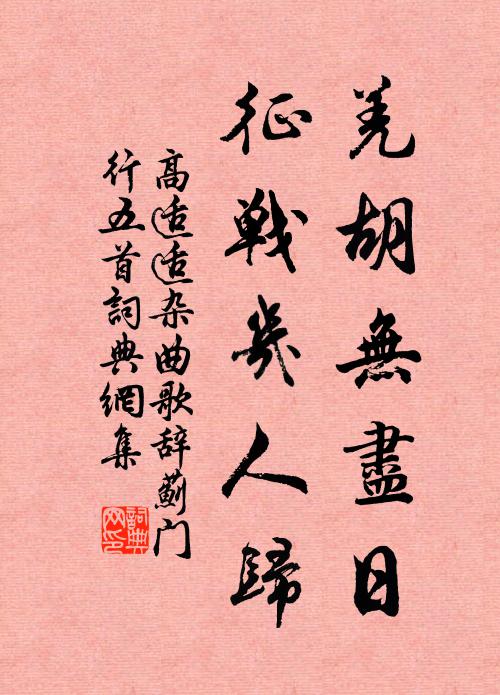 羌胡無盡日
征戰幾人歸
高适适杂曲歌辞薊门
行五首詞典網集
詞典
网印